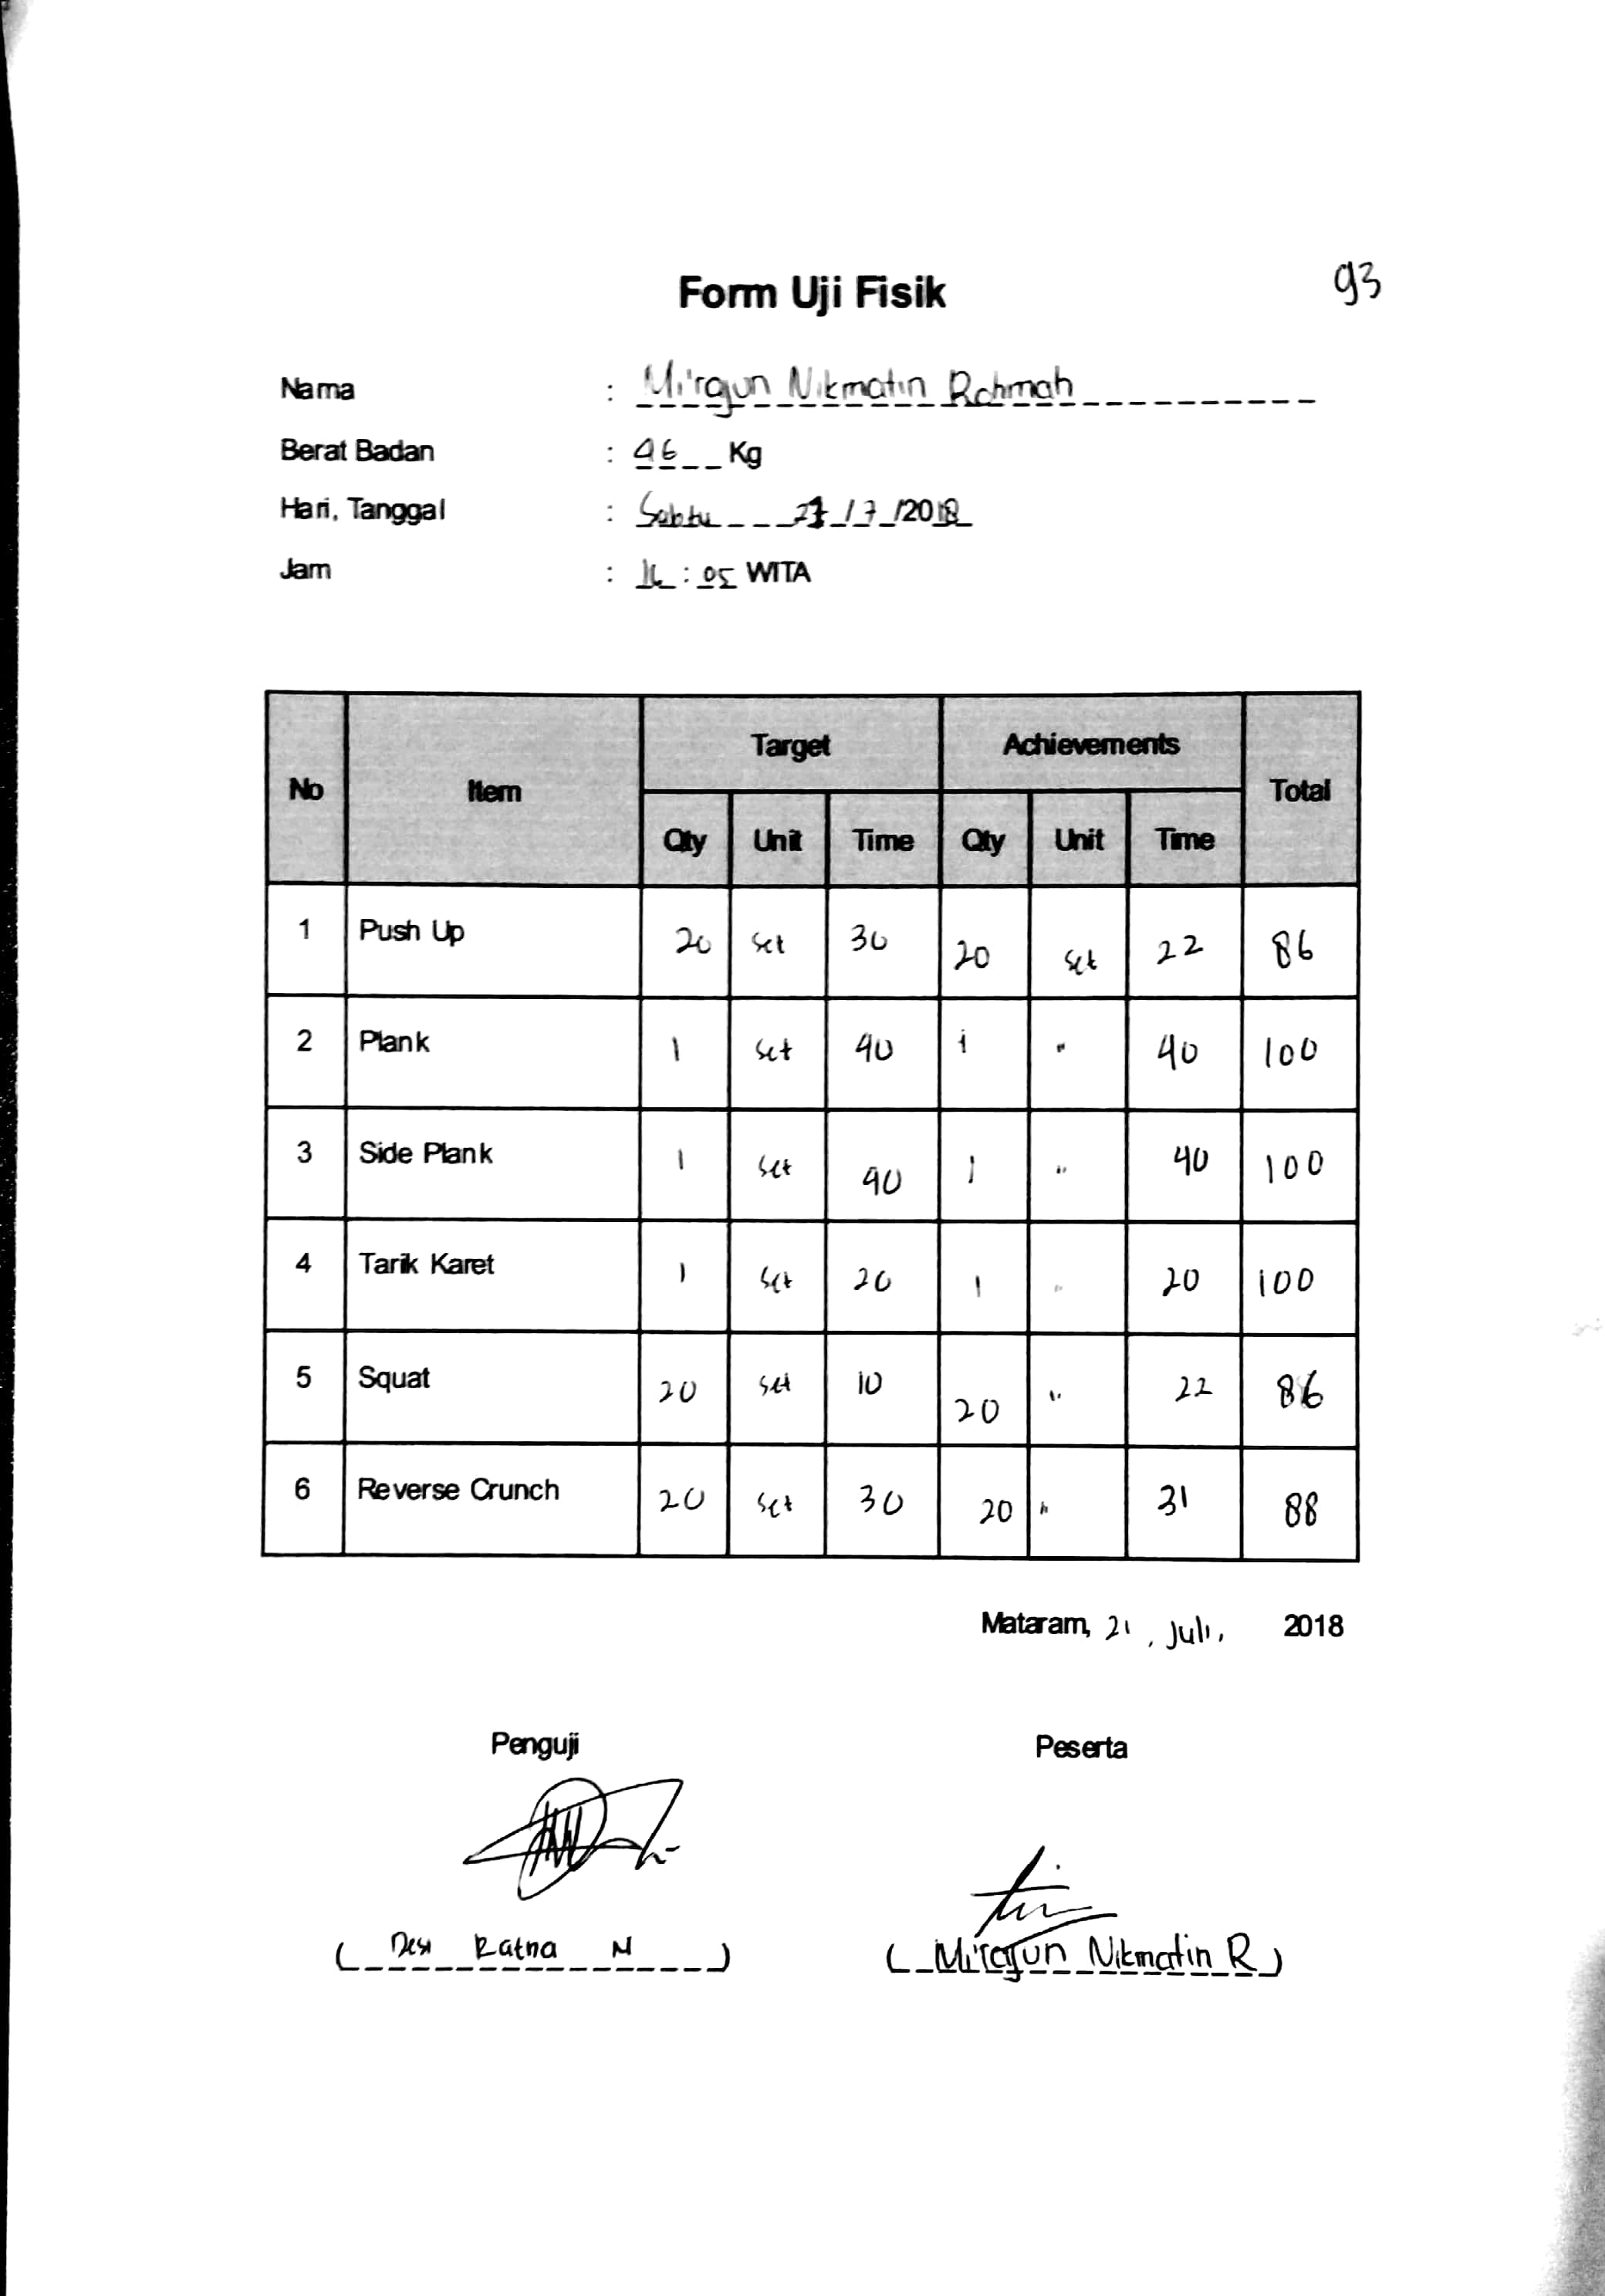 Form Uji Fisik 93
Nama : Mi'rajun Nikmatin Rahmah
Berat Badan : 46 Kg
Hari, Tanggal : Sabtu 21/7/2018
Jam : 16:05 WITA
No Item Target Achievements Total
Qty Unit Time Qty Unit Time
1 Push Up 20 set 30 20 set 22 86
2 Plank 1 set 40 1 " 40 100
3 Side Plank 1 set 40 1 " 40 100
4 Tarik Karet 1 set 20 1 " 20 100
5 Squat 20 set 10 20 " 22 86
6 Reverse Crunch 20 set 30 20 " 31 88
Mataram, 21, Juli, 2018
Penguji Peserta
( Desi Ratna N ) ( Mi'rajun Nikmatin R )